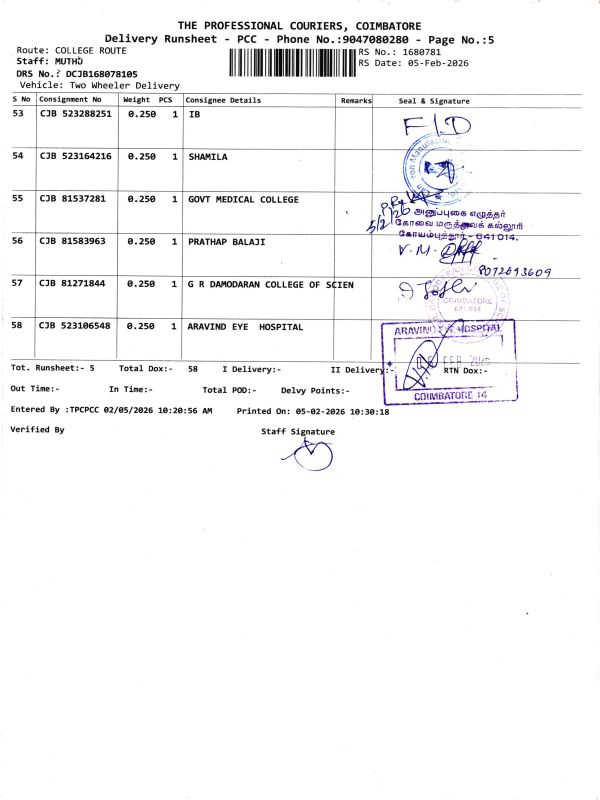 THE PROFESSIONAL COURIERS, COIMBATORE
Delivery Runsheet - PCC - Phone No.:9047080280 - Page No.:5
Route: COLLEGE ROUTE
RS No.: 1680781
Staff: MUTHU
RS Date: 05-Feb-2026
DRS No.: DCJB168078105
Vehicle: Two Wheeler Delivery
S No Consignment No Weight PCS Consignee Details Remarks Seal & Signature
53 CJB 523288251 0.250 1 IB
F/D
54 CJB 523164216 0.250 1 SHAMILA
55 CJB 81537281 0.250 1 GOVT MEDICAL COLLEGE
5/2/26 அனுப்புகை எழுத்தர்
கோவை மருத்துவக் கல்லூரி
கோயம்புத்தூர் - 641 014.
56 CJB 81583963 0.250 1 PRATHAP BALAJI
V. M.
9072693609
57 CJB 81271844 0.250 1 G R DAMODARAN COLLEGE OF SCIEN
COIMBATORE
641 014
58 CJB 523106548 0.250 1 ARAVIND EYE HOSPITAL
ARAVIND EYE HOSPITAL
FEB 2026
COIMBATORE 14
Tot. Runsheet:- 5 Total Dox:- 58 I Delivery:- II Delivery:- RTN Dox:-
Out Time:- In Time:- Total POD:- Delvy Points:-
Entered By :TPCPCC 02/05/2026 10:20:56 AM Printed On: 05-02-2026 10:30:18
Verified By Staff Signature